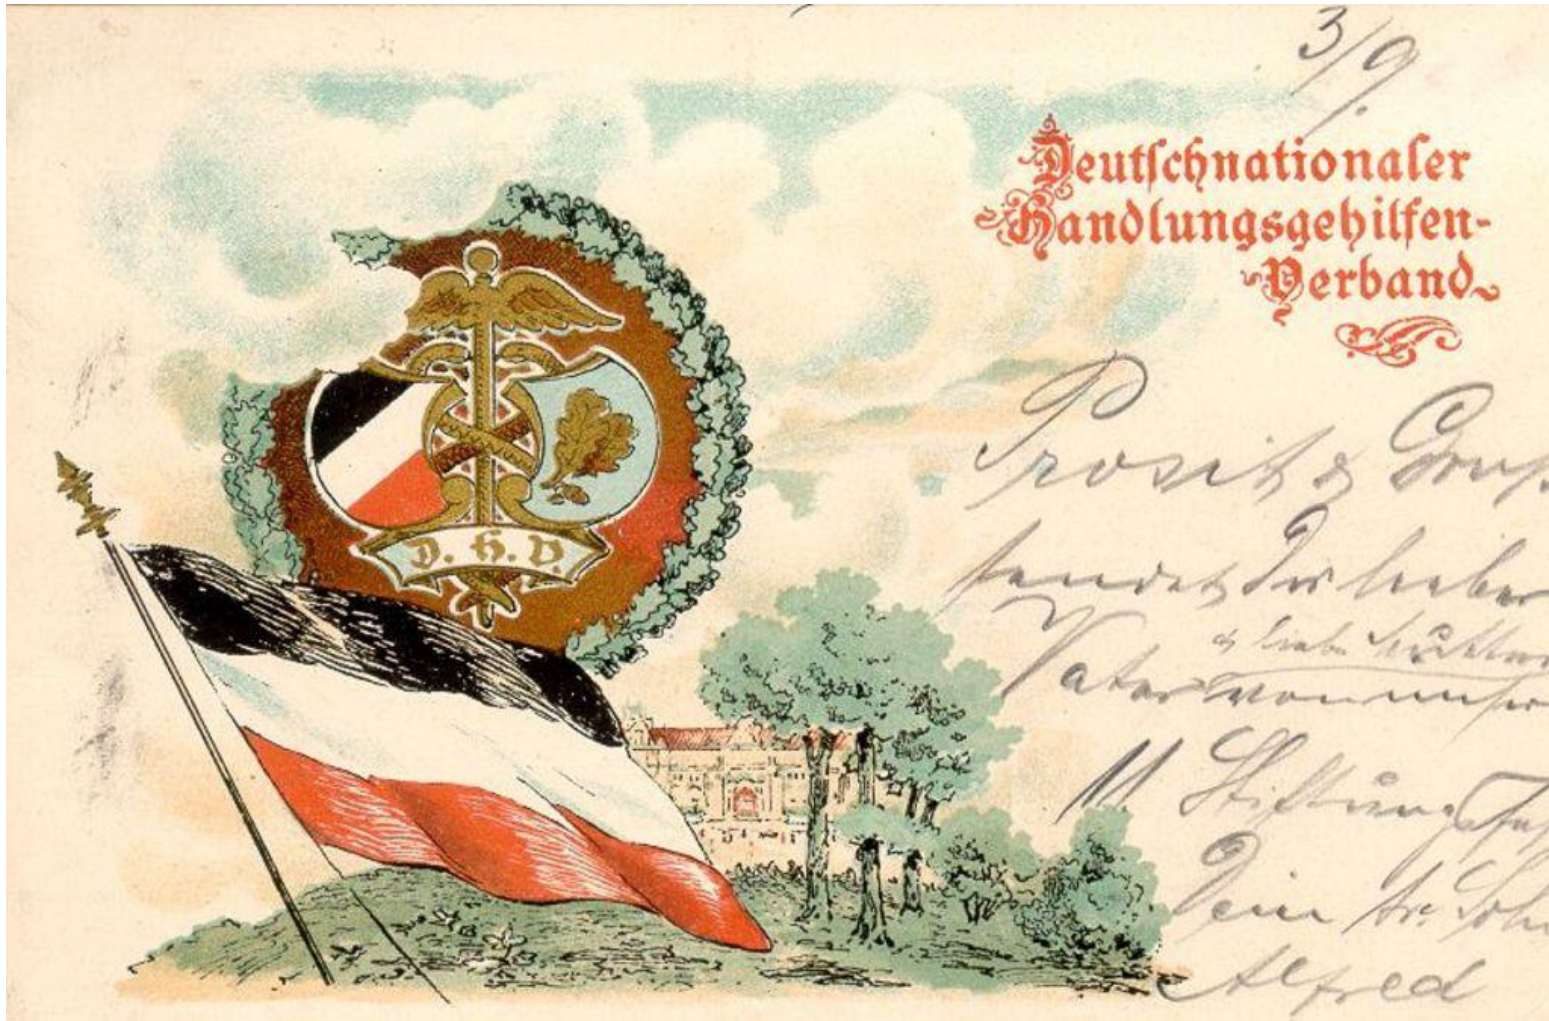 3/9.
Deutschnationaler
Handlungsgehilfen-
Verband
D. H. V.
Prosit & Gruß
sendet Dir lieber
& liebe Mutter
Vater von unser
11 Stiftungsfest
Dein tr. Sohn
Alfred